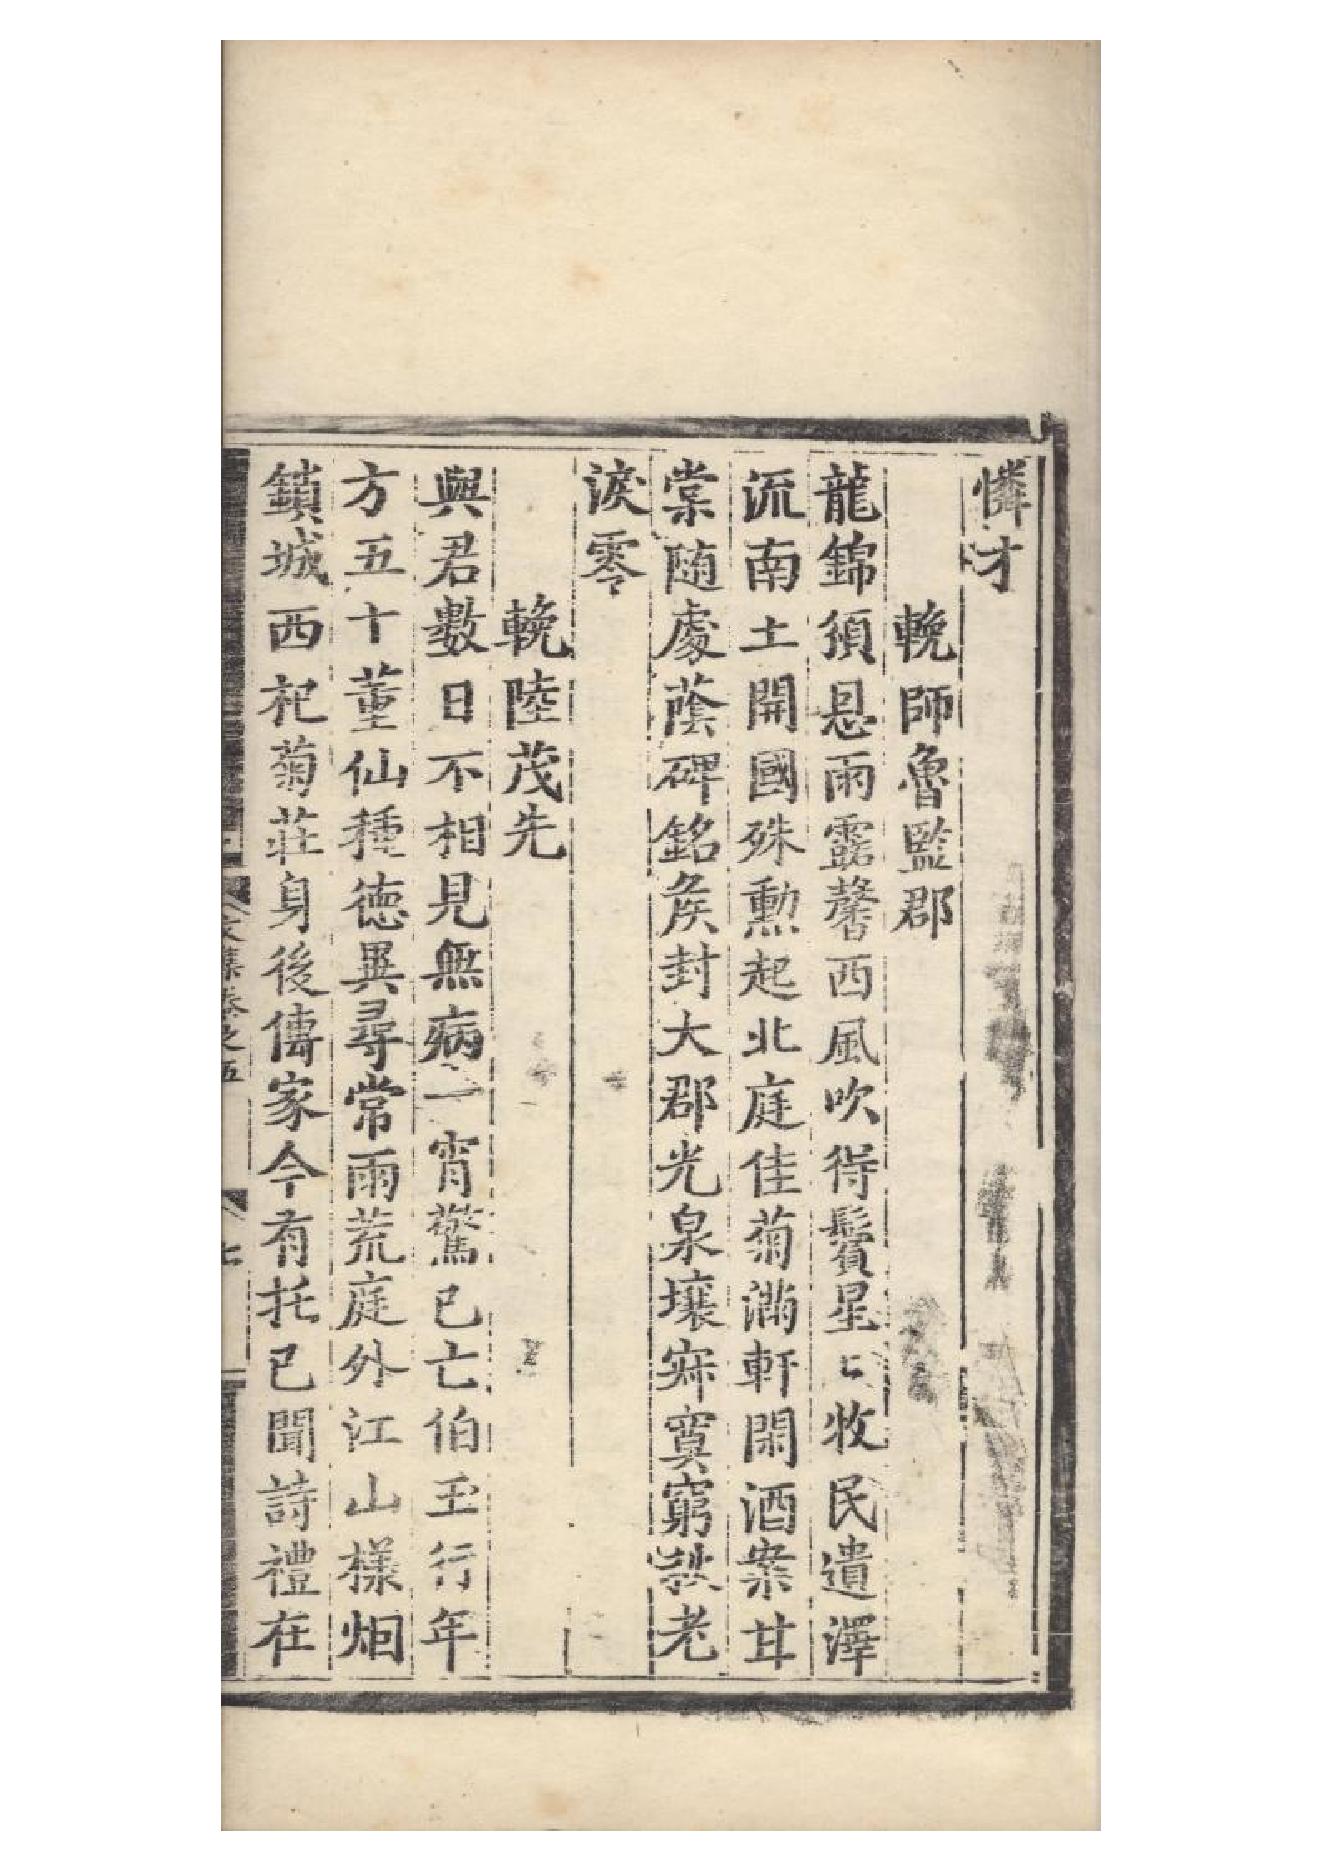 憐才
輓師魯監郡
龍錦須恩雨露馨西風吹得鬢星〻牧民遺澤
流南土開國殊勳起北庭佳菊滿軒閑酒案甘
棠随處蔭碑銘侯封大郡光泉壤寂寞窮
老
淚零
輓陸茂先
與君數日不相見無病一宵驚已亡伯玉行年
方五十董仙種德異尋常雨荒庭外江山様烟
鎖城西杞菊莊身後傳家今有托已聞詩禮在
文集卷之五
七